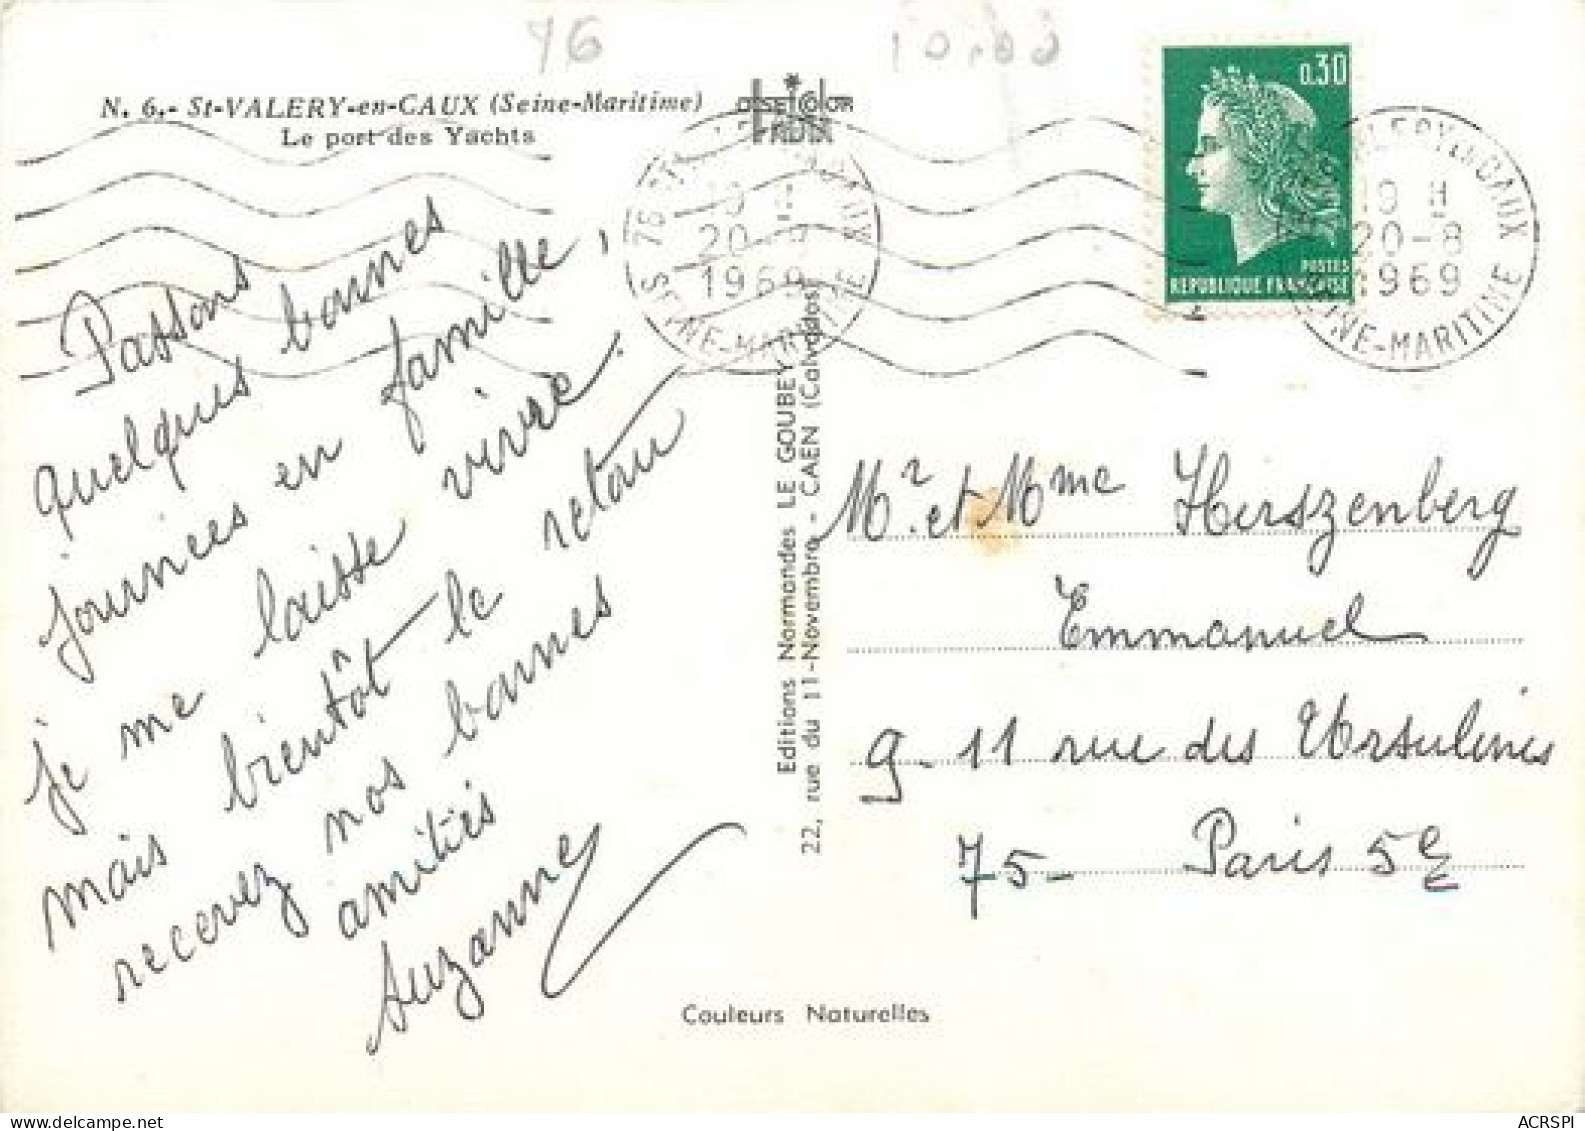 76
10.00
N. 6.- St-VALERY-en-CAUX (Seine-Maritime)
Le port des Yachts
0.30
POSTES
REPUBLIQUE FRANÇAISE
1969
SEINE-MARITIME
18 H
20-8
1969
Passons
quelques bonnes
journées en famille,
je me laisse vivre.
mais bientôt le retour
recevez nos bonnes
amitiés
Suzanne
Editions Normandes LE GOUBEY
22, rue du 11-Novembre - CAEN (Calvados)
Mr. et Mme Herszenberg
Emmanuel
9-11 rue des Ursulines
75- Paris 5e
Couleurs Naturelles
ACRSPI